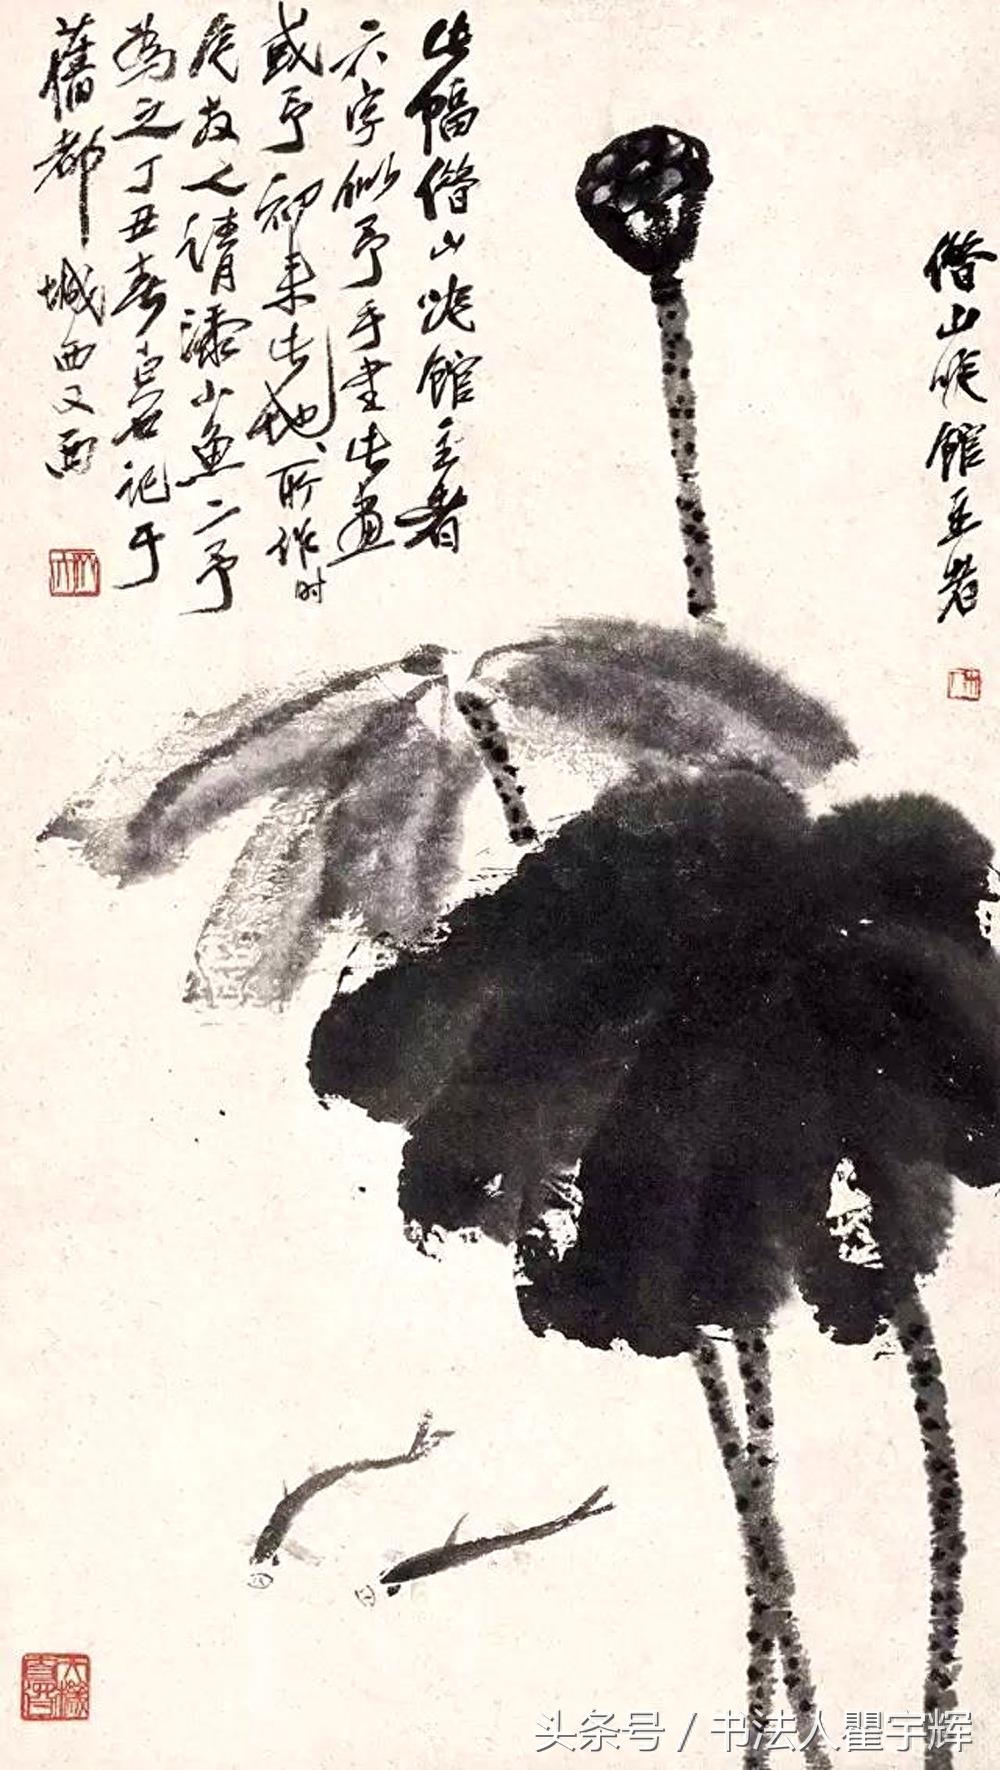 借山吟館主者
此幅借山吟館主者
六字似予手書此畫
或予初來此地所作时
虎女人請添小魚二予
為之丁丑春白石記于
舊都城西又西
头条号 / 书法人瞿宇辉